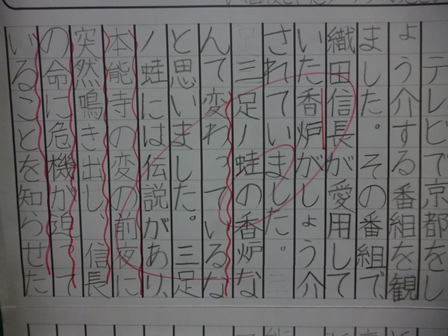 テレビで京都をし
ょう介する番組を観
ました。その番組で、
織田信長が愛用して
いた香炉がしょう介
されていました。
三足ノ蛙の香炉な
んて変わっているな
と思いました。三足
ノ蛙には伝説があり、
本能寺の変の前夜に
突然鳴き出し、信長
の命に危機が迫って
いることを知らせた